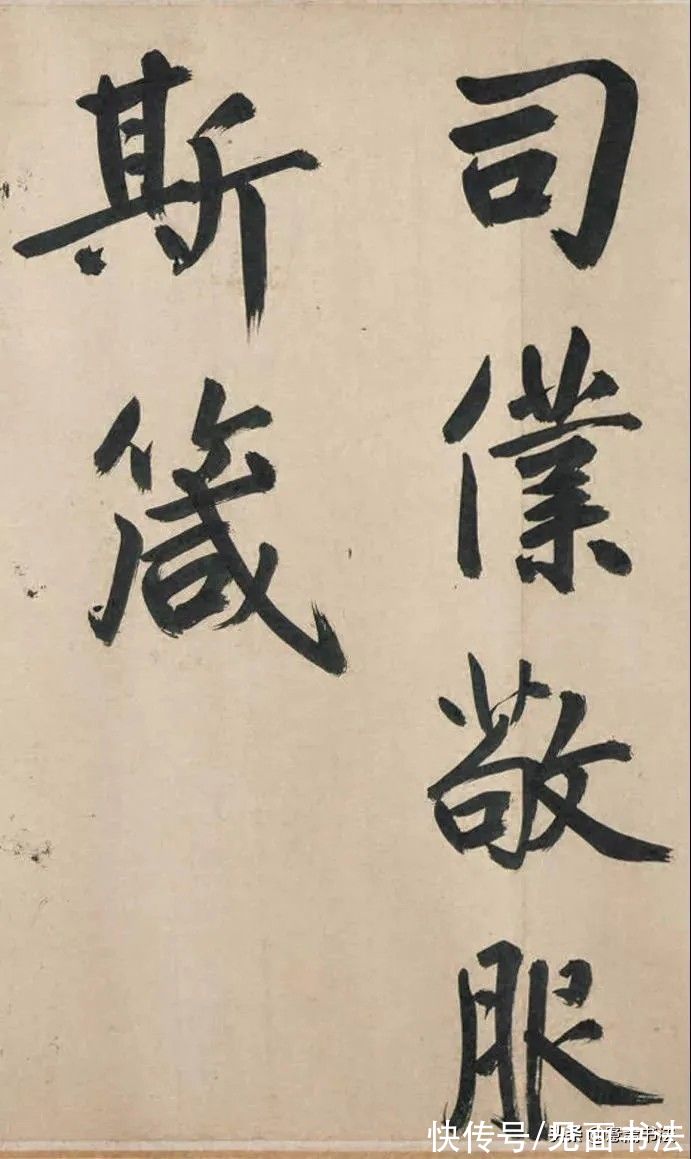 司僕敬服
斯箴
快传号/见面书法